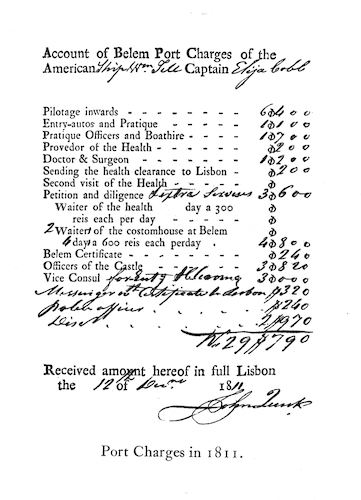 Account of Belem Port Charges of the
American Ship Wm Tell Captain Elija Cobb
Pilotage inwards - - - - - - - 6$400
Entry-autos and Pratique - - - - 1$100
Pratique Officers and Boathire - - - - 1$700
Provedor of the Health - - - - - $200
Doctor & Surgeon - - - - - - 1$200
Sending the health clearance to Lisbon - $200
Second visit of the Health - - - $
Petition and diligence 3$600
Waiter of the health day a 300
reis each per day - - - - - $
2 Waiters of the costomhouse at Belem
4 days a 600 reis each perday . 4$800
Belem Certificate - - - - - - $240
Officers of the Castle - - - - - 3$820
Vice Consul for entg & Clearing 3$000
Messenger wth Certificate to Lisbon $320
Police officer $240
Disct 2$970
Rs. 29$790
Received amount hereof in full Lisbon
the 12th of Decre 1811,
John
Port Charges in 1811.